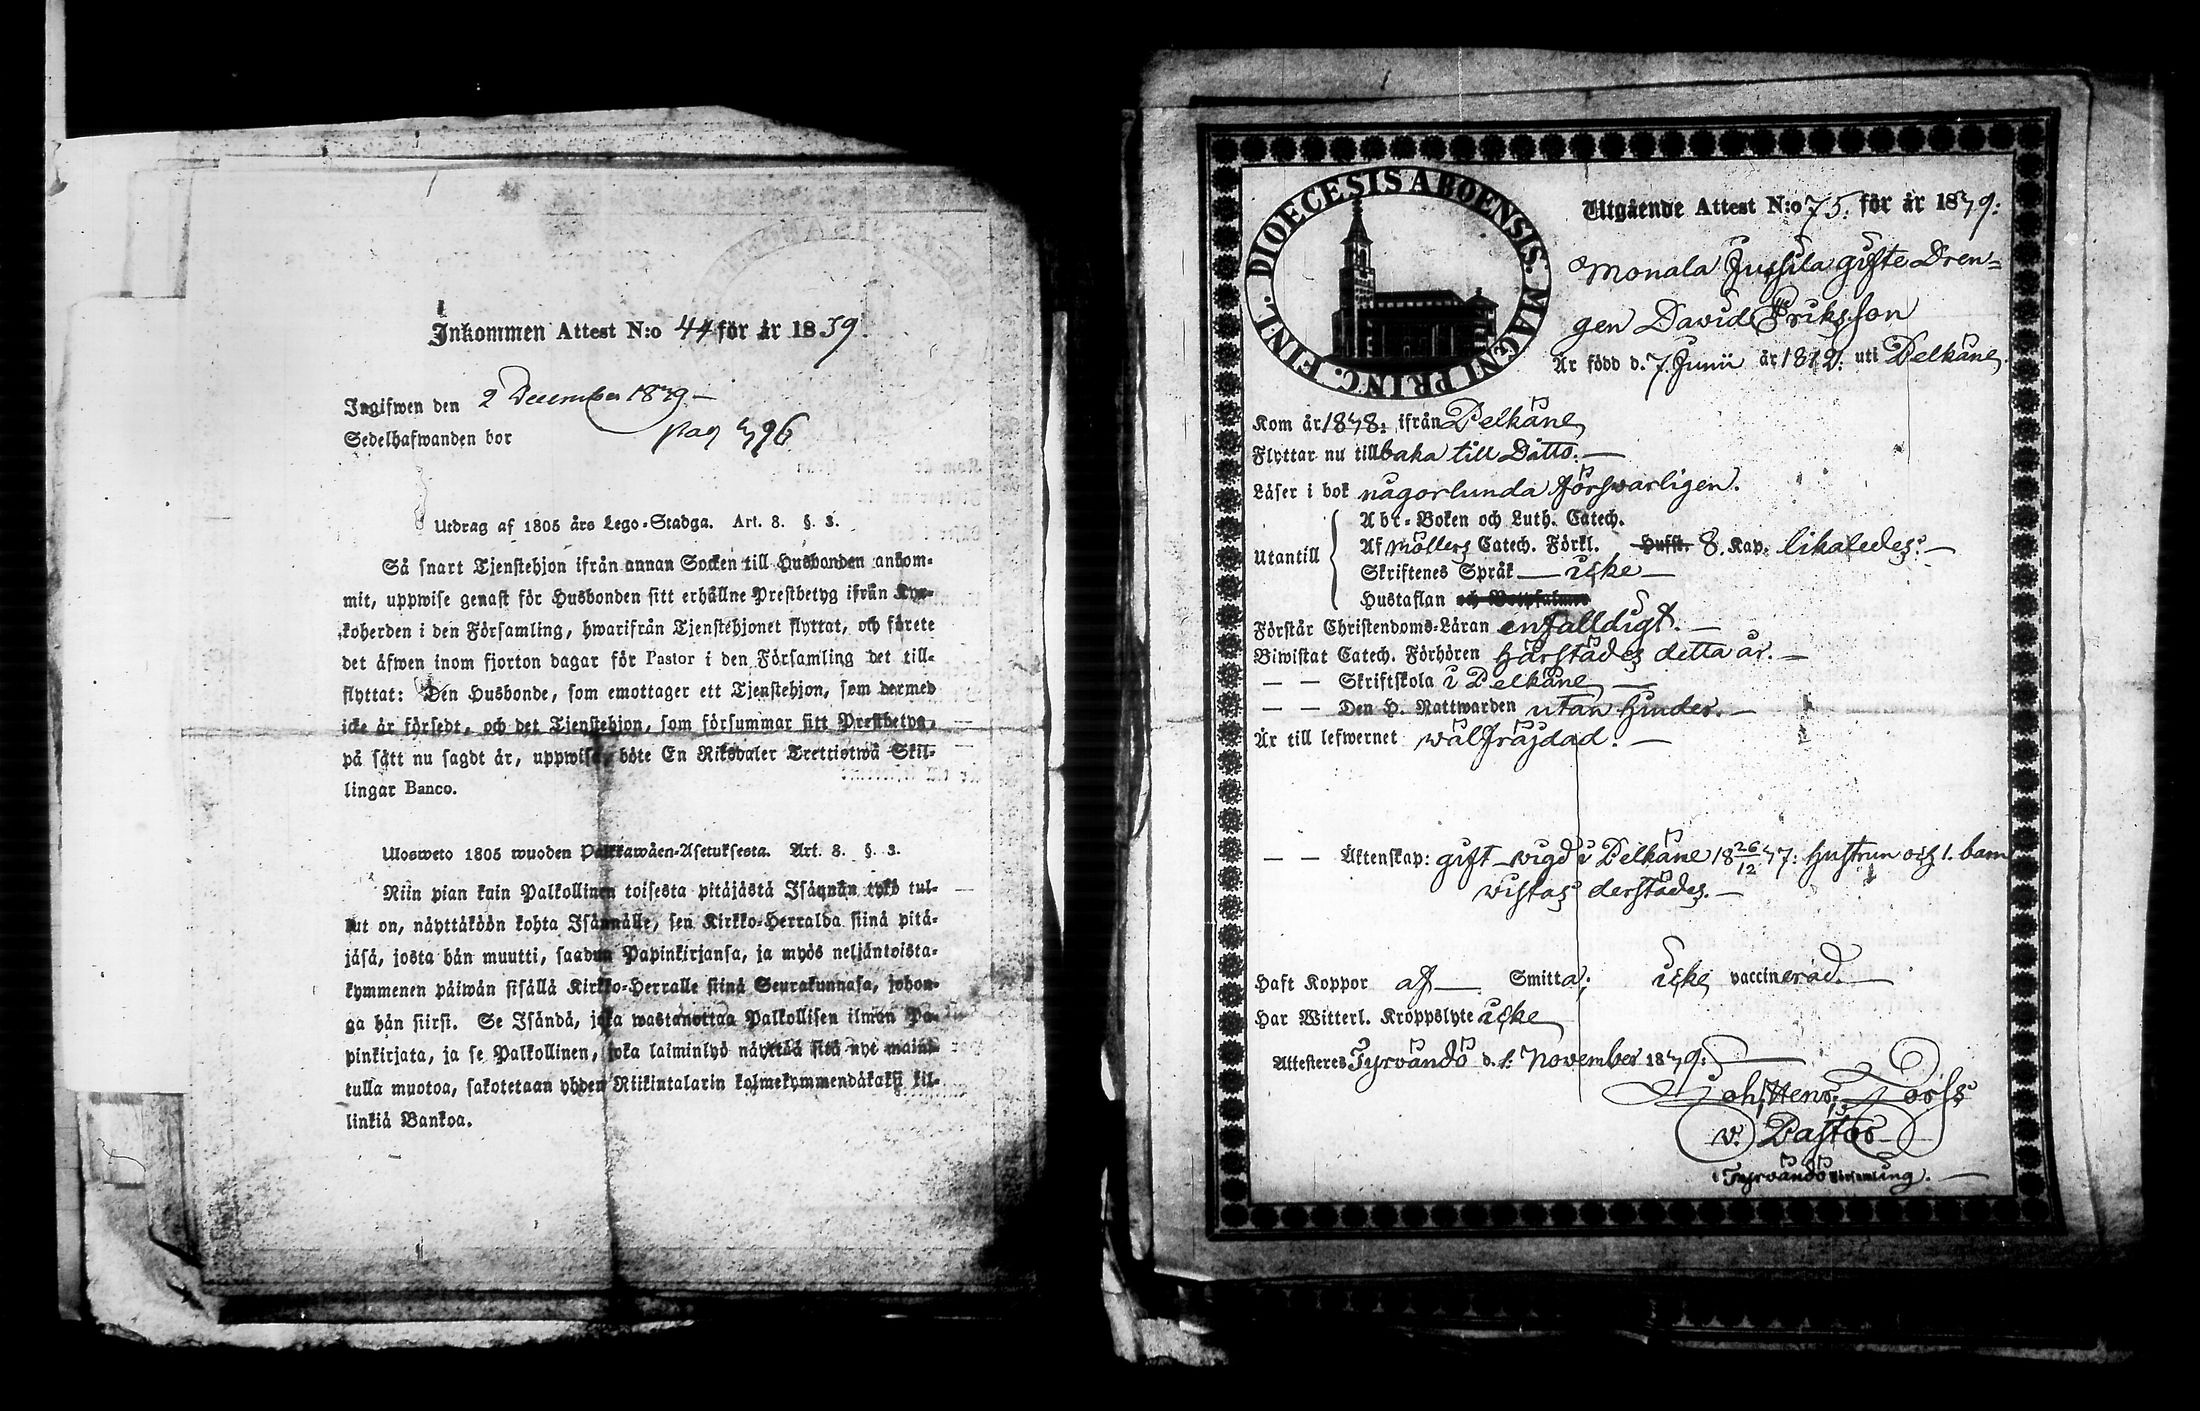 Inkommen Attest N:o 44 för år 1839.
Ingifwen den 2 December 1839.—
Sedelhafwanden bor pag 396
Utdrag af 1805 års Lego-Stadga. Art. 8. §. 3.
Så snart Tjenstehjon ifrån annan Socken till Husbonden ankom-
mit, uppwise genast för Husbonden sitt erhållne Prestbetyg ifrån Kyr-
koherden i den Församling, hwarifrån Tjenstehjonet flyttat, och förete
det äfwen inom fjorton dagar för Pastor i den Församling det till-
flyttat: Den Husbonde, som emottager ett Tjenstehjon, som dermed
icke är försedt, och det Tjenstehjon, som försummar sitt Prestbetyg,
på sätt nu sagdt är, uppwisa, böte En Riksdaler Trettiotwå Skil-
lingar Banco.
Ulosweto 1805 wuoden Palkkawäen-Asetuksesta. Art. 8. §. 3.
Niin pian kuin Palkollinen toisesta pitäjästä Isännän tykö tul-
lut on, näyttäköön kohta Isännälle, sen Kirkko-Herralda siinä pitä-
jäsä, josta hän muutti, saadun Papinkirjansa, ja myös neljäntoista-
kymmenen päiwän sisällä Kirkko-Herralle siinä Seurakunnasa, johon-
ga hän siirsi. Se Isändä, joka wastanottaa Palkollisen ilman Pa-
pinkirjata, ja se Palkollinen, joka laiminlyö näyttää sitä nyt maini-
tulla muotoa, sakotetaan yhden Riikintalarin kolmekymmendäkaksi kil-
linkiä Bankoa.
DIOECESIS ABOENSIS. MAGNI PRINC. FINL.
Utgående Attest N:o 75. för år 1839.
Monala Jussila gifte Dren=
gen David Eriksson
Är född d. 7. Junii år 1812. uti Pelkäne
Kom år 1838. ifrån Pelkäne
Flyttar nu tillbaka till Ditto.—
Läser i bok någorlunda försvarligen.
Utantill
Abc-Boken och Luth. Catech.
Af Möllers Catech. Förkl. Husts. 8. Kap. likaledes.—
Skriftenes Språk — icke —
Hustaflan och Botpsalmer
Förstår Christendoms-Läran enfalldigt.—
Biwistat Catech. Förhören härstädes detta år.—
— — Skriftskola i Pelkäne —
— — Den H. Nattwarden utan hinder.—
Är till lefwernet wälfräjdad.—
— — Äktenskap: gift wigd i Pelkäne 18 26/12 37. hustrun och 1. barn
vistas derstädes.—
Haft Koppor af — Smitta; icke vaccinerad.—
Har Witterl. Kroppslyte icke
Attesteres Tyrvändö d. 1. November 1839.
Joh. Henr.
v. Pastor
i Tyrvändö Församling.—